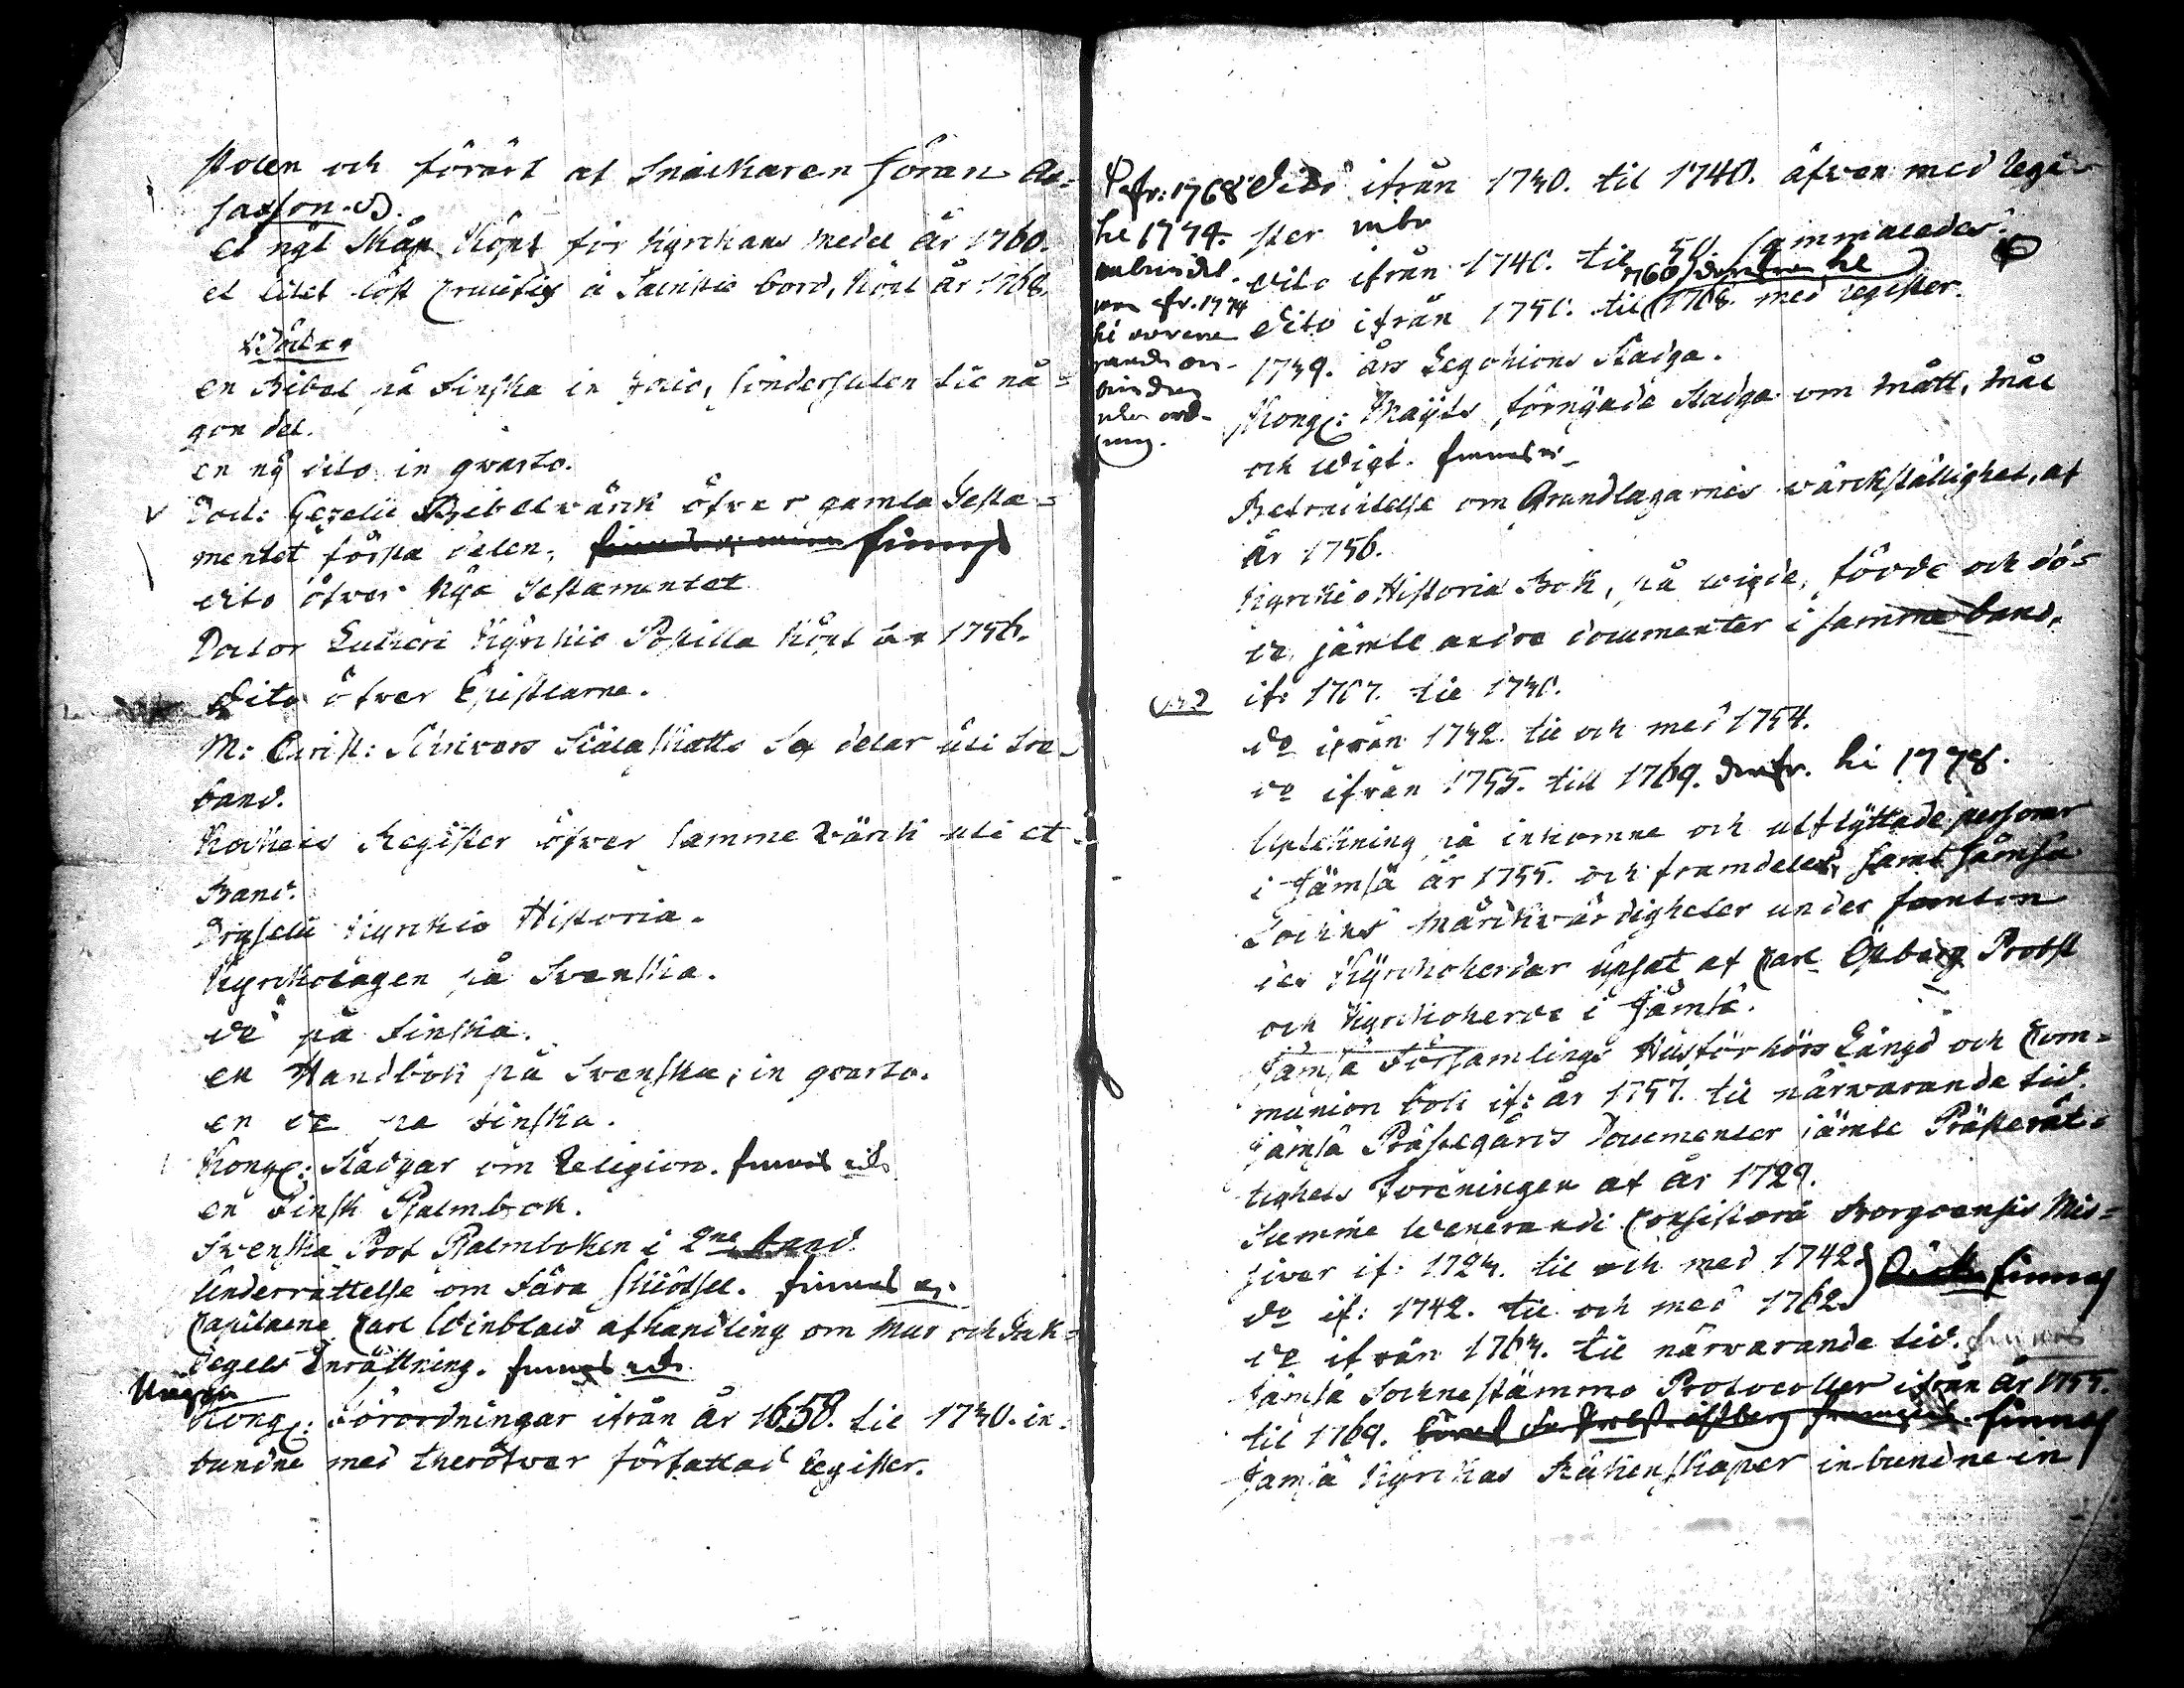 stolen och förärt af Snickaren Jöran
et nýt Skåp Köpt för Kyrckans medel år 1760.
et litet löst Crucifix å Sackstie bord, Köpt År 1768.
Böcker
en Bibel på Finska in Folio, söndersliten til nå-
gon del.
en ny dito in qvarto.
Doct: Gezelii Bibelvärck öfver gamla Testa-
mentet första delen, finnes
dito öfver Nya Testamentet
Doctor Lutheri Kyrckio Postilla Köpt år 1756.
dito öfver Epistlarne.
M: Christ: Scrivers Siäla Skatts Sex delar uti tre
band.
Register öfver samme Värck uti et
Band.
Kyrckio Historia.
Kyrckolagen på Svenska.
do på Finska.
en Handbok på Svenska, in qvarto.
en do på Finska.
Kongl: Stadgar om Religion. finnes ick
en Finsk Psalmbok.
Svenska Prof Psalmboken i 2ne band
Underrättelse om Fåra skiötsel. finnes ej
Capitaine Carl Winblads afhandling om mur och Tak-
tegels Inrättning. finnes ick
Kongl: Förordningar ifrån År 1658. til 1730. in-
bundne med theröfver författad Register.
fr: 1768
til 1774.
fr. 1774
dito ifrån 1730. til 1740. äfven med Regi-
ster
dito ifrån 1740. til 50. sammaledes
dito ifrån 1750. til 1768. med register.
1739. års Legohions Stadga.
Kongl: Maijts förnyade Stadga om mått, mål
och wigt. finnes ej
Betracktelse om Grundlagarnes värckställighet, af
År 1756.
Kyrckio Historia Bok, på wigde, födde och dö-
de, jämte andre documenter i samma band,
if: 1707. til 1730.
do ifrån 1732. til och med 1754.
do ifrån 1755. till 1769. til 1778.
Uptekning på inkomne och utflyttade personer
i Jämsä år 1755. och framdeles, samt Jämsä
Sockns märckvärdigheter under femton
des Kyrckoherdar upsat af Carl Probst
och Kyrckoherde i Jämsä.
Jämsä Församlings Husförhörs Längd och Com-
munion bok if: år 1757. til närvarande tid.
Jämsä Prästegårds Documenter jämte Prästerät-
tighets Foreningen af År 1729.
Summe Wenerandi Consistorii Borgoensis Mis-
siver if: 1723. til och med 1742.
do if: 1742. til och med 1762. finnas
do ifrån 1763. til närvarande tid. finnes
Jämsä Sockne stämmo Protocoller ifrån År 1755.
til 1769. finnes
Jämsä Kyrckas Räkenskaper inbundne in